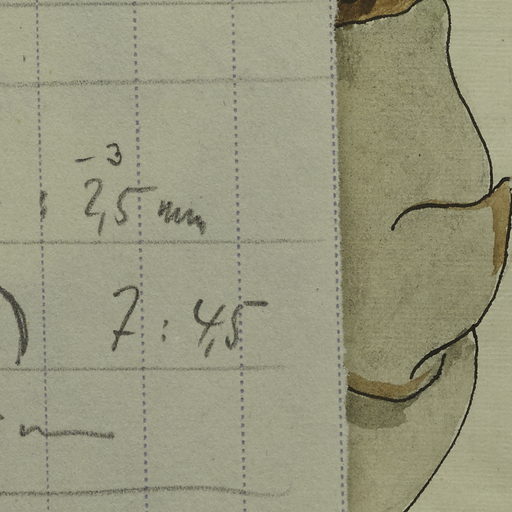 -3
: 2,5 mm
) 7 : 4,5